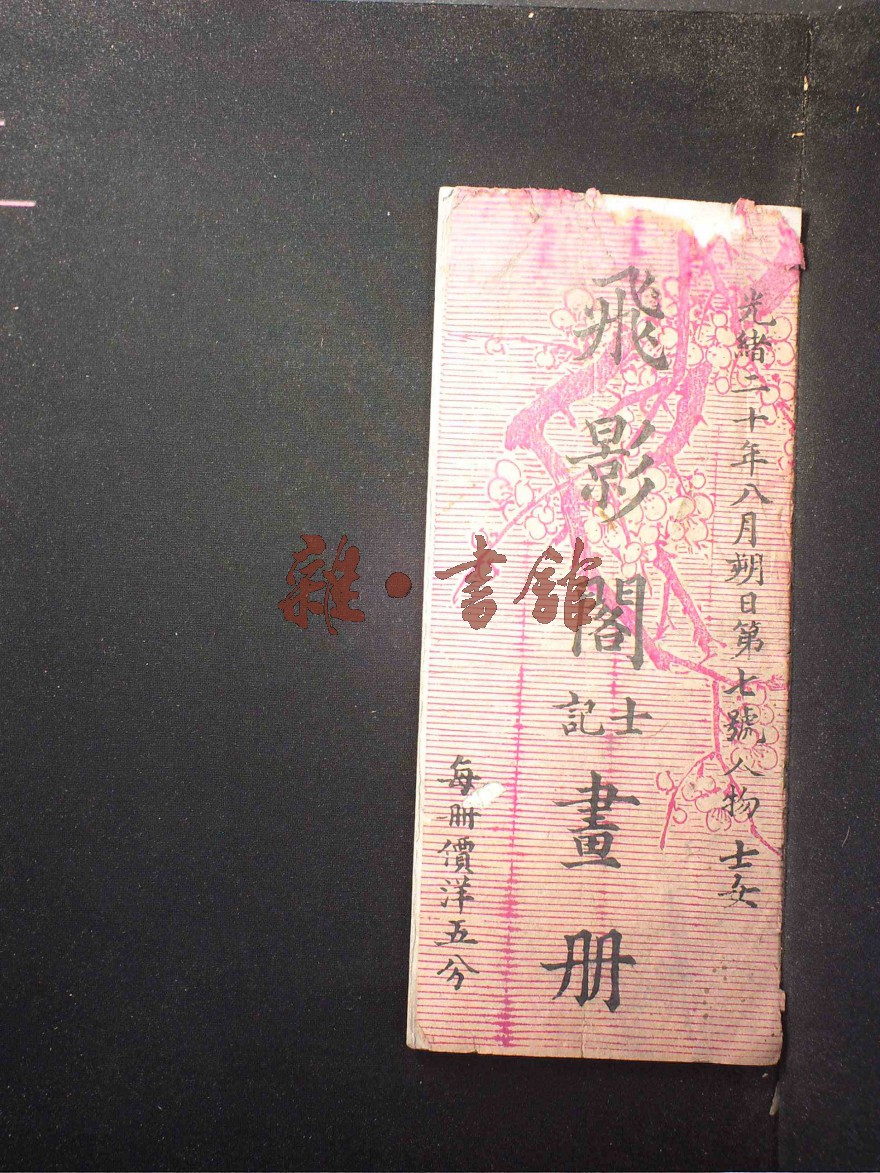 光緒二十年八月朔日第七號人物士女
飛影閣士記畫册
每册價洋五分
雜·書舘